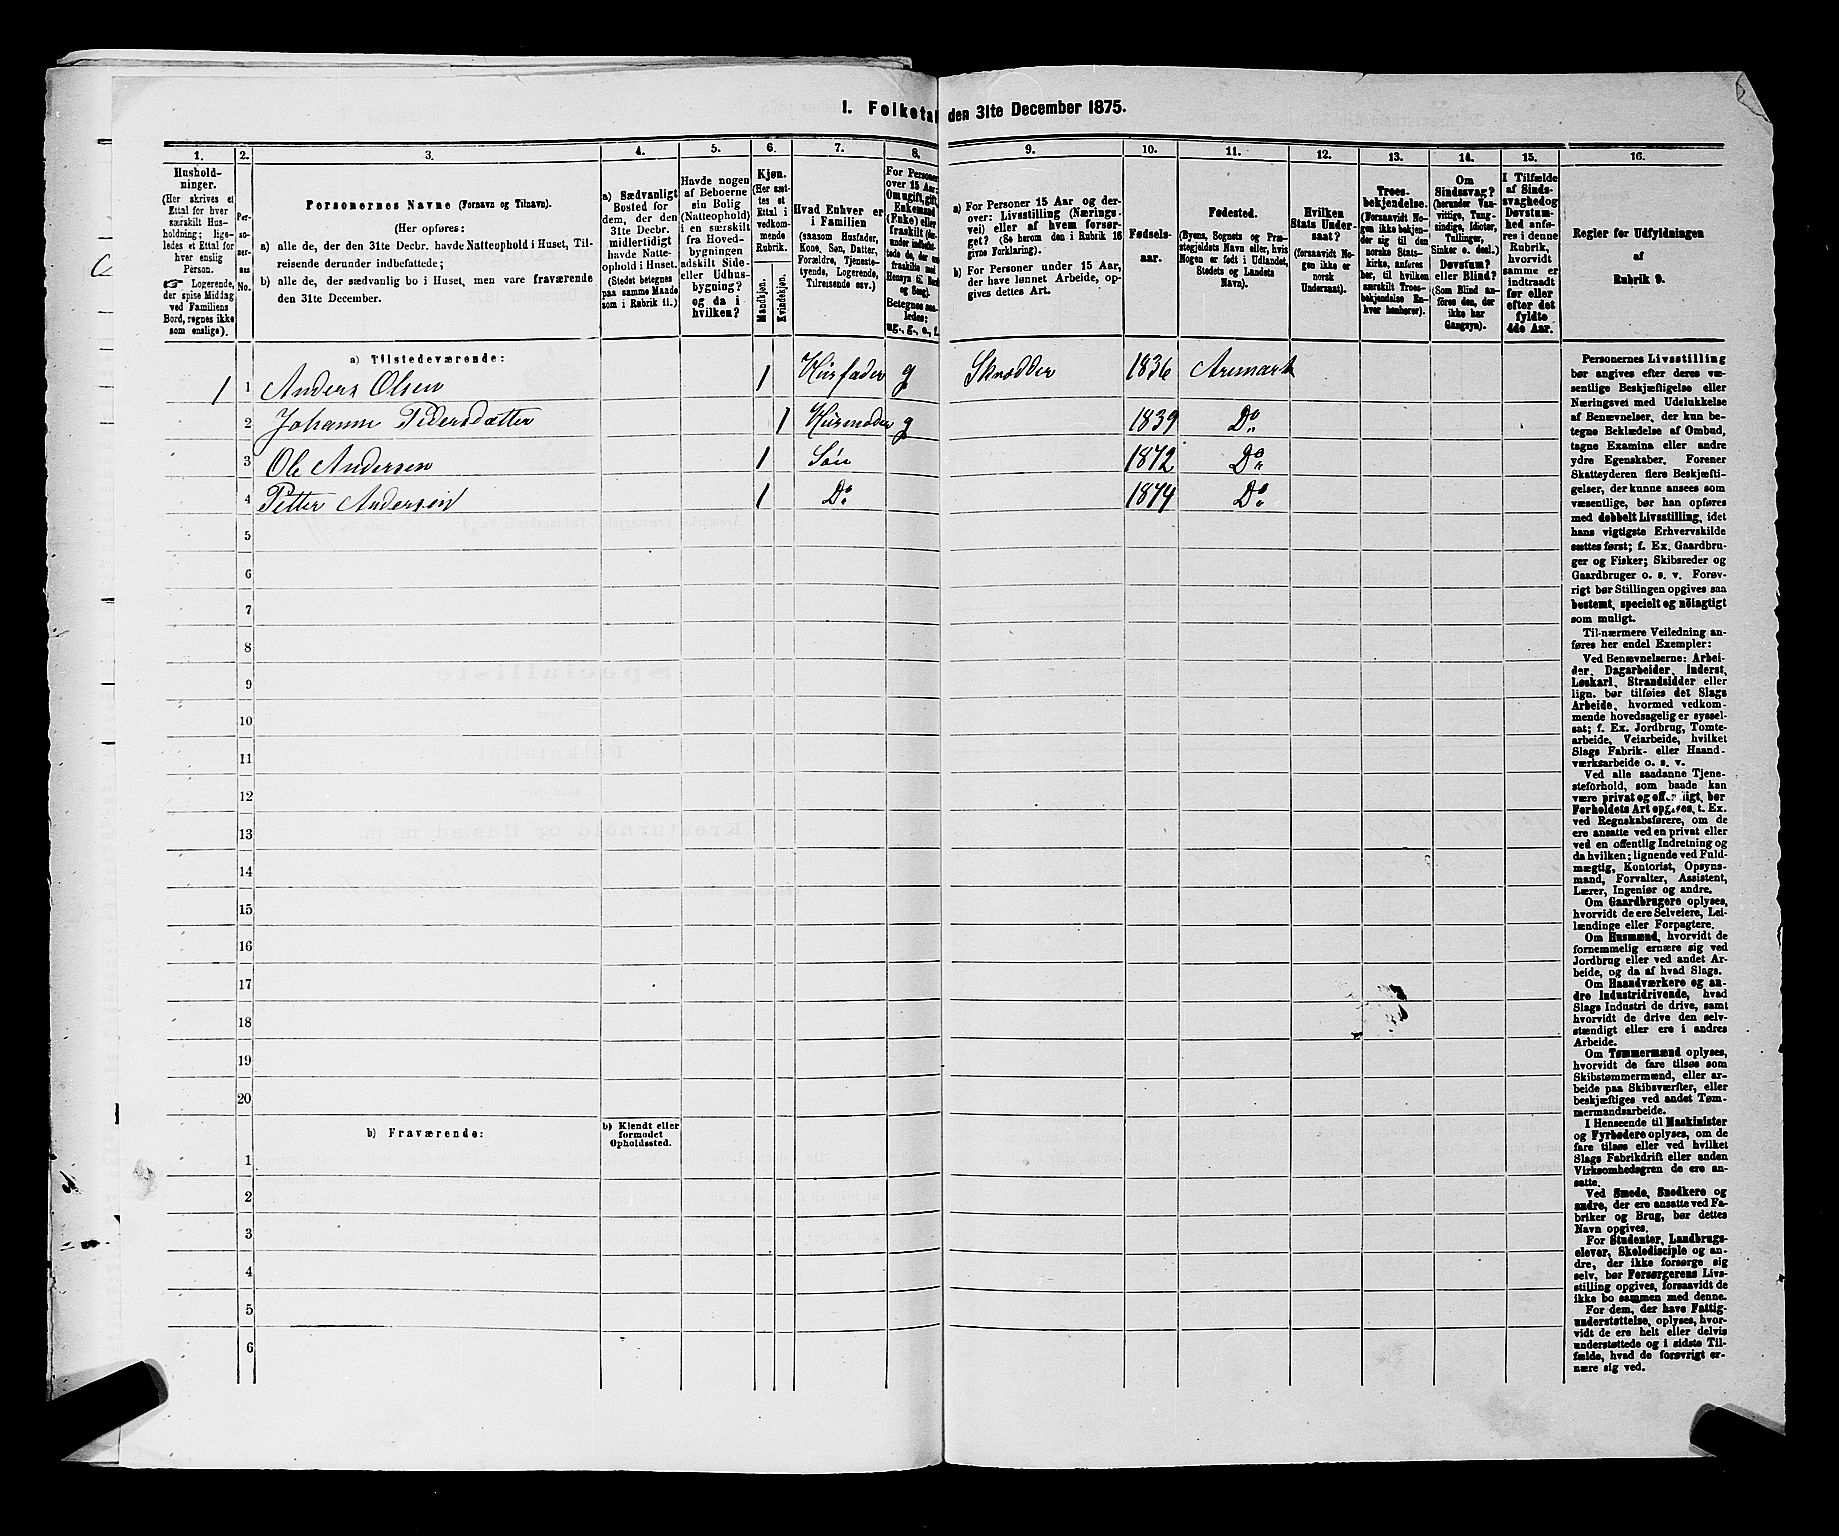 I. Folketal den 31te December 1875.
1. 2. 3. 4. 5. 6. 7. 8. 9. 10. 11. 12. 13. 14. 15. 16.
Hushold-
ninger.
(Her skrives et
Ettal for hver
særskilt Hus-
holdning; lige-
ledes et Ettal for
hver enslig
Person.
☞ Logerende,
der spise Middag
ved Familiens
Bord, regnes ikke
som enslige).
Per-
so-
ner-
nes
No.
Personernes Navne (Fornavn og Tilnavn).
(Her opføres:
a) alle de, der den 31te Decbr. havde Natteophold i Huset, Til-
reisende derunder indbefattede;
b) alle de, der sædvanlig bo i Huset, men vare fraværende
den 31te December.
a) Sædvanligt
Bosted for
dem, der den
31te Decbr.
midlertidigt
havde Natte-
ophold i Huset.
(Stedet betegnes
paa samme Maade
som i Rubrik 11.)
Havde nogen
af Beboerne
sin Bolig
(Natteophold)
i en særskilt
fra Hoved-
bygningen
adskilt Side-
eller Udhus-
bygning?
og da i
hvilken?
Kjøn.
(Her sæt-
tes et
Ettal i
vedkom-
mende
Rubrik.
Mandkjøn.
Kvindekjøn.
Hvad Enhver er
i Familien
(saasom Husfader,
Kone, Søn, Datter,
Forældre, Tjeneste-
tyende, Logerende,
Tilreisende osv.)
For Personer
over 15 Aar:
Om ugift, gift,
Enkemand
(Enke) eller
fraskilt
Betegnes saa-
ledes:
ug., g., e., f.
a) For Personer 15 Aar og der-
over: Livsstilling (Nærings-
vei) eller af hvem forsør-
get? (Se herom den i Rubrik 16
givne Forklaring).
b) For Personer under 15 Aar,
der have lønnet Arbeide, op-
gives dettes Art.
Fødsels-
aar.
Fødested.
(Byens, Sognets og Præ-
stegjeldets Navn eller, hvis
Nogen er født i Udlandet,
Stedets og Landets
Navn).
Hvilken
Stats Under-
saat?
(forsaavidt No-
gen ikke er
norsk
Undersaat).
Troes-
bekjendelse.
(Forsaavidt No-
gen ikke bekjen-
der sig til den
norske Stats-
kirke, anføres
her, til hvilken
særskilt Troes-
bekjendelse En-
hver henhører).
Om
Sindssvag?
(herunder Van-
vittige, Tung-
sindige, Idioter,
Tullinger,
Sinker o. desl.)
Døvstum?
eller Blind?
(Som Blind an-
føres den, der
ikke har
Gangsyn).
I Tilfælde
af Sinds-
svaghed og
Døvstum-
hed anfø-
res i denne
Rubrik,
hvorvidt
samme er
indtraadt
før eller
efter det
fyldte
4de Aar.
Regler for Udfyldningen
af
Rubrik 9.
a) Tilstedeværende:
1 1 Anders Olsen 1 Husfader g Skrædder 1836 Aremark
2 Johanne Pedersdatter 1 Husmoder g 1839 Do
3 Ole Andersen 1 Søn 1872 Do
4 Petter Andersen 1 Do 1874 Do
5
6
7
8
9
10
11
12
13
14
15
16
17
18
19
20
b) Fraværende:
b) Kjendt eller
formodet
Opholdssted.
1
2
3
4
5
6
Personernes Livsstilling
bør angives efter deres væ-
sentlige Beskjæftigelse eller
Næringsvei med Udelukkelse
af Benævnelser, der kun be-
tegne Beklædelse af Ombud,
tagne Examina eller andre
ydre Egenskaber. Forener
Skatteyderen flere Beskjæfti-
gelser, der kunne ansees som
væsentlige, bør han opføres
med dobbelt Livsstilling, idet
hans vigtigste Erhvervskilde
sættes først; f. Ex. Gaardbru-
ger og Fisker; Skibsreder og
Gaardbruger o. s. v. Forøv-
rigt bør Stillingen opgives saa
bestemt, specielt og nöiagtigt
som muligt.
Til nærmere Veiledning an-
føres her endel Exempler:
Ved Benævnelserne: Arbei-
der, Dagarbeider, Inderst,
Løskarl, Strandsidder eller
lign. bør tilføies det Slags
Arbeide, hvormed vedkom-
mende hovedsagelig er syssel-
sat; f. Ex. Jordbrug, Tomte-
arbeide, Veiarbeide, hvilket
Slags Fabrik- eller Haand-
værksarbeide o. s. v.
Ved alle saadanne Tjene-
steforhold, som baade kan
være privat og offentligt, bør
Forholdets Art opgives, f. Ex.
ved Regnskabsførere, om de
ere ansatte ved en privat eller
ved en offentlig Indretning og
da hvilken; lignende ved Fuld-
mægtig, Kontorist, Opsyns-
mand, Forvalter, Assistent,
Lærer, Ingeniør og andre.
Om Gaardbrugere oplyses,
hvorvidt de ere Selveiere, Lei-
lændinge eller Forpagtere.
Om Husmænd, hvorvidt de
fornemmelig ernære sig ved
Jordbrug eller ved andet Ar-
beide, og da af hvad Slags.
Om Haandværkere og an-
dre Industridrivende, hvad
Slags Industri de drive, samt
hvorvidt de drive den selv-
stændigt eller ere i andres
Arbeide.
Om Tømmermænd oplyses,
hvorvidt de fare tilsøs som
Skibstømmermænd, eller ar-
beide paa Skibsværfter, eller
beskjæftiges ved andet Tøm-
mermandsarbeide.
I Henseende til Maskinister
og Fyrbødere oplyses, om de
fare tilsøs eller ved hvilket
Slags Fabrikdrift eller anden
Virksomhedsgren de ere an-
satte.
Ved Smede, Snedkere og
andre, der ere ansatte ved Fa-
briker og Brug, bør dettes
Navn opgives.
For Studenter, Landbrugs-
elever, Skoledisciple og an-
dre, der ikke forsørge sig
selv, bør Forsørgerens Livs-
stilling opgives, forsaavidt de
ikke bo sammen med denne.
For dem, der have Fattig-
understøttelse, oplyses, hvor-
vidt de ere helt eller delvis
understøttede og i sidste Til-
fælde, hvad de forøvrigt er-
nære sig ved.